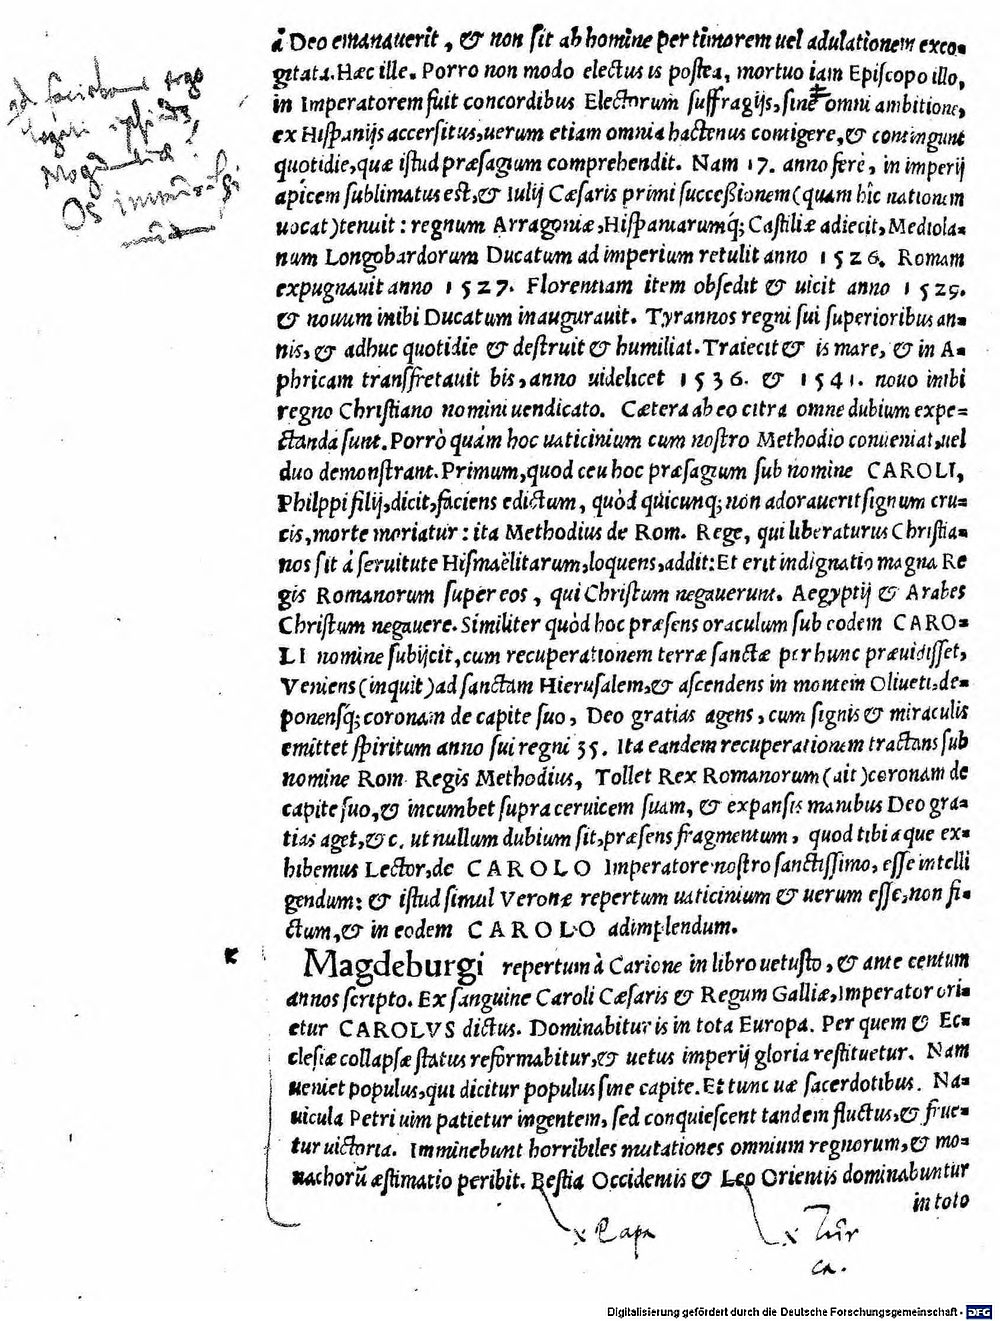 à Deo emanauerit, & non sit ab homine per timorem uel adulationem exco-
gitata. Hæc ille. Porro non modo electus is postea, mortuo iam Episcopo illo,
in Imperatorem fuit concordibus Electorum suffragijs, sine omni ambitione,
ex Hispanijs accersitus, uerum etiam omnia hactenus contigere, & contingunt
quotidie, quæ istud præsagium comprehendit. Nam 17. anno ferè, in imperij
apicem sublimatus est, & Iulij Cæsaris primi succeßionem (quam hîc nationem
uocat) tenuit: regnum Arragoniæ, Hispaniarumq́; Castiliæ adiecit, Mediola-
num Longobardorum Ducatum ad imperium retulit anno 1526. Romam
expugnauit anno 1527. Florentiam item obsedit & uicit anno 1529.
& nouum inibi Ducatum inaugurauit. Tyrannos regni sui superioribus an-
nis, & adhuc quotidie & destruit & humiliat. Traiecit & is mare, & in A-
phricam transfretauit bis, anno uidelicet 1536. & 1541. nouo inibi
regno Christiano nomini uendicato. Cætera ab eo citra omne dubium expe=
ctanda sunt. Porrò quàm hoc uaticinium cum nostro Methodio conueniat, uel
duo demonstrant. Primum, quod ceu hoc præsagium sub nomine CAROLI,
Philppi filij, dicit, faciens edictum, quòd quicunq; non adorauerit signum cru-
cis, morte moriatur: ita Methodius de Rom. Rege, qui liberaturus Christia-
nos sit à seruitute Hismaëlitarum, loquens, addit: Et erit indignatio magna Re
gis Romanorum super eos, qui Christum negauerunt. Aegyptij & Arabes
Christum negauere. Similiter quòd hoc præsens oraculum sub eodem CARO-
LI nomine subijcit, cum recuperationem terræ sanctæ per hunc præuidisset,
Veniens (inquit) ad sanctam Hierusalem, & ascendens in montem Oliueti, de-
ponensq́; coronam de capite suo, Deo gratias agens, cum signis & miraculis
emittet spiritum anno sui regni 35. Ita eandem recuperationem tractans sub
nomine Rom. Regis Methodius, Tollet Rex Romanorum (ait) coronam de
capite suo, & incumbet supra ceruicem suam, & expansis manibus Deo gra-
tias aget, &c. ut nullum dubium sit, præsens fragmentum, quod tibi aque ex-
hibemus Lector, de CAROLO Imperatore nostro sanctissimo, esse intelli
gendum: & istud simul Veronæ repertum uaticinium & uerum esse, non fi-
ctum, & in eodem CAROLO adimplendum.
Magdeburgi repertum à Carione in libro uetusto, & ante centum
annos scripto. Ex sanguine Caroli Cæsaris & Regum Galliæ, Imperator ori-
etur CAROLVS dictus. Dominabitur is in tota Europa. Per quem & Ec-
clesiæ collapsæ status reformabitur, & uetus imperij gloria restituetur. Nam
ueniet populus, qui dicitur populus sine capite. Et tunc uæ sacerdotibus. Na-
uicula Petri uim patietur ingentem, sed conquiescent tandem fluctus, & frue-
tur uictoria. Imminebunt horribiles mutationes omnium regnorum, & mo-
nachorũ æstimatio peribit. Bestia Occidentis & Leo Orientis dominabuntur
in toto
x Papa
x Tür
ca.
Digitalisierung gefördert durch die Deutsche Forschungsgemeinschaft - DFG